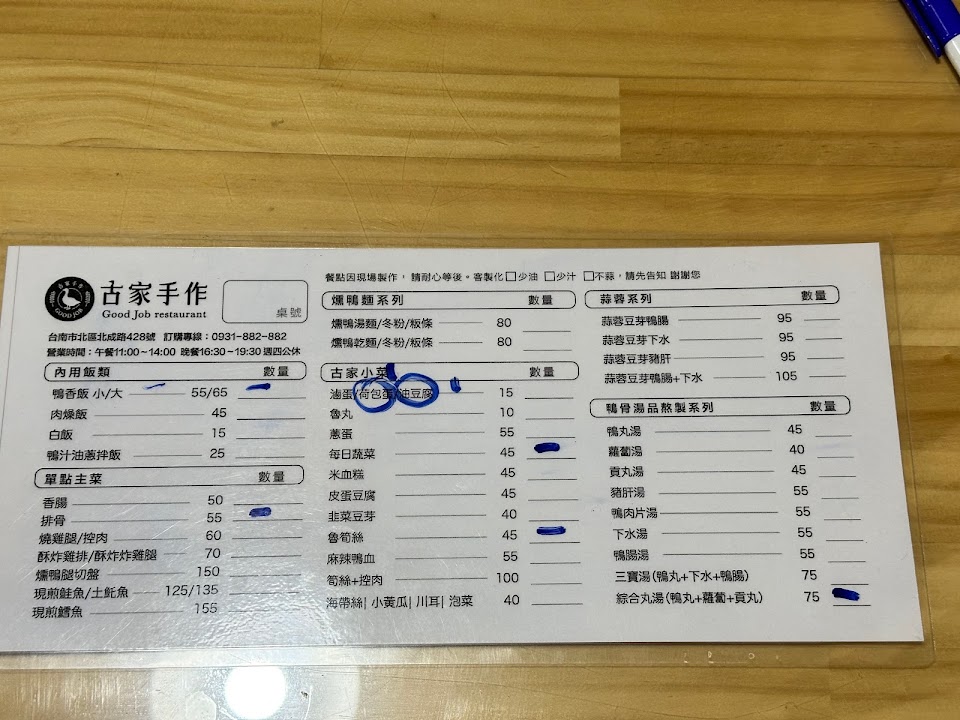 古家手作
Good Job restaurant
桌號
台南市北區北成路428號 訂購專線：0931-882-882
營業時間：午餐11:00~14:00 晚餐16:30~19:30 週四公休
內用飯類 數量
鴨香飯 小/大 55/65
肉燥飯 45
白飯 15
鴨汁油蔥拌飯 25
單點主菜 數量
香腸 50
排骨 55
燒雞腿/控肉 60
酥炸雞排/酥炸炸雞腿 70
燻鴨腿切盤 150
現煎鮭魚/土魠魚 125/135
現煎鱈魚 155
餐點因現場製作，請耐心等後。客製化□少油 □少汁 □不蒜，請先告知 謝謝您
燻鴨麵系列 數量
燻鴨湯麵/冬粉/粄條 80
燻鴨乾麵/冬粉/粄條 80
古家小菜 數量
滷蛋/荷包蛋/油豆腐 15
魯丸 10
蔥蛋 55
每日蔬菜 45
米血糕 45
皮蛋豆腐 45
韭菜豆芽 40
魯筍絲 45
麻辣鴨血 55
筍絲+控肉 100
海帶絲| 小黃瓜| 川耳| 泡菜 40
蒜蓉系列 數量
蒜蓉豆芽鴨腸 95
蒜蓉豆芽下水 95
蒜蓉豆芽豬肝 95
蒜蓉豆芽鴨腸+下水 105
鴨骨湯品熬製系列 數量
鴨丸湯 45
蘿蔔湯 40
貢丸湯 45
豬肝湯 55
鴨肉片湯 55
下水湯 55
鴨腸湯 55
三寶湯(鴨丸+下水+鴨腸) 75
綜合丸湯(鴨丸+蘿蔔+貢丸) 75